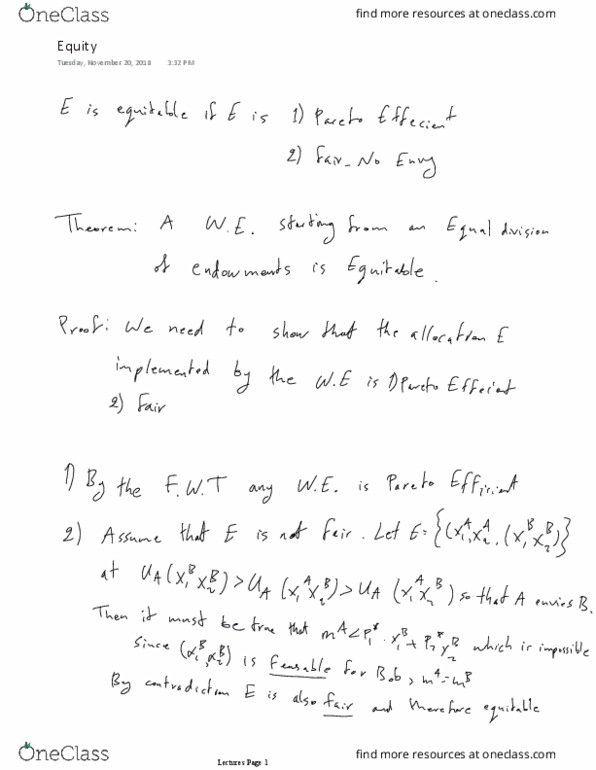 OneClass
find more resources at oneclass.com
Equity
Tuesday, November 20, 2018 3:32 PM
E is equitable if E is 1) Pareto Effecient
2) Fair_No Envy
Theorem: A W.E. starting from an Equal division
of endowments is Equitable.
Proof: We need to show that the allocation E
implemented by the W.E is 1) Pareto Efficient
2) Fair
1) By the F.W.T any W.E. is Pareto Efficient
2) Assume that E is not fair. Let E={(x₁ᴬ,x₂ᴬ,(x₁ᴮ,x₂ᴮ)}
at U_A(x₁ᴮ,x₂ᴮ)>U_A(x₁ᴬ,x₂ᴮ)>U_A(x₁ᴬ,x₂ᴮ) so that A envies B.
Then it must be true that mᴬ<P₁*.x₁ᴮ+P₂*x₂ᴮ which is impossible
Since (x₁ᴮ,x₂ᴮ) is Feasable for Bob, mᴬ=mᴮ
By contradiction E is also fair and therefore equitable
OneClass
Lectures Page 1
find more resources at oneclass.com